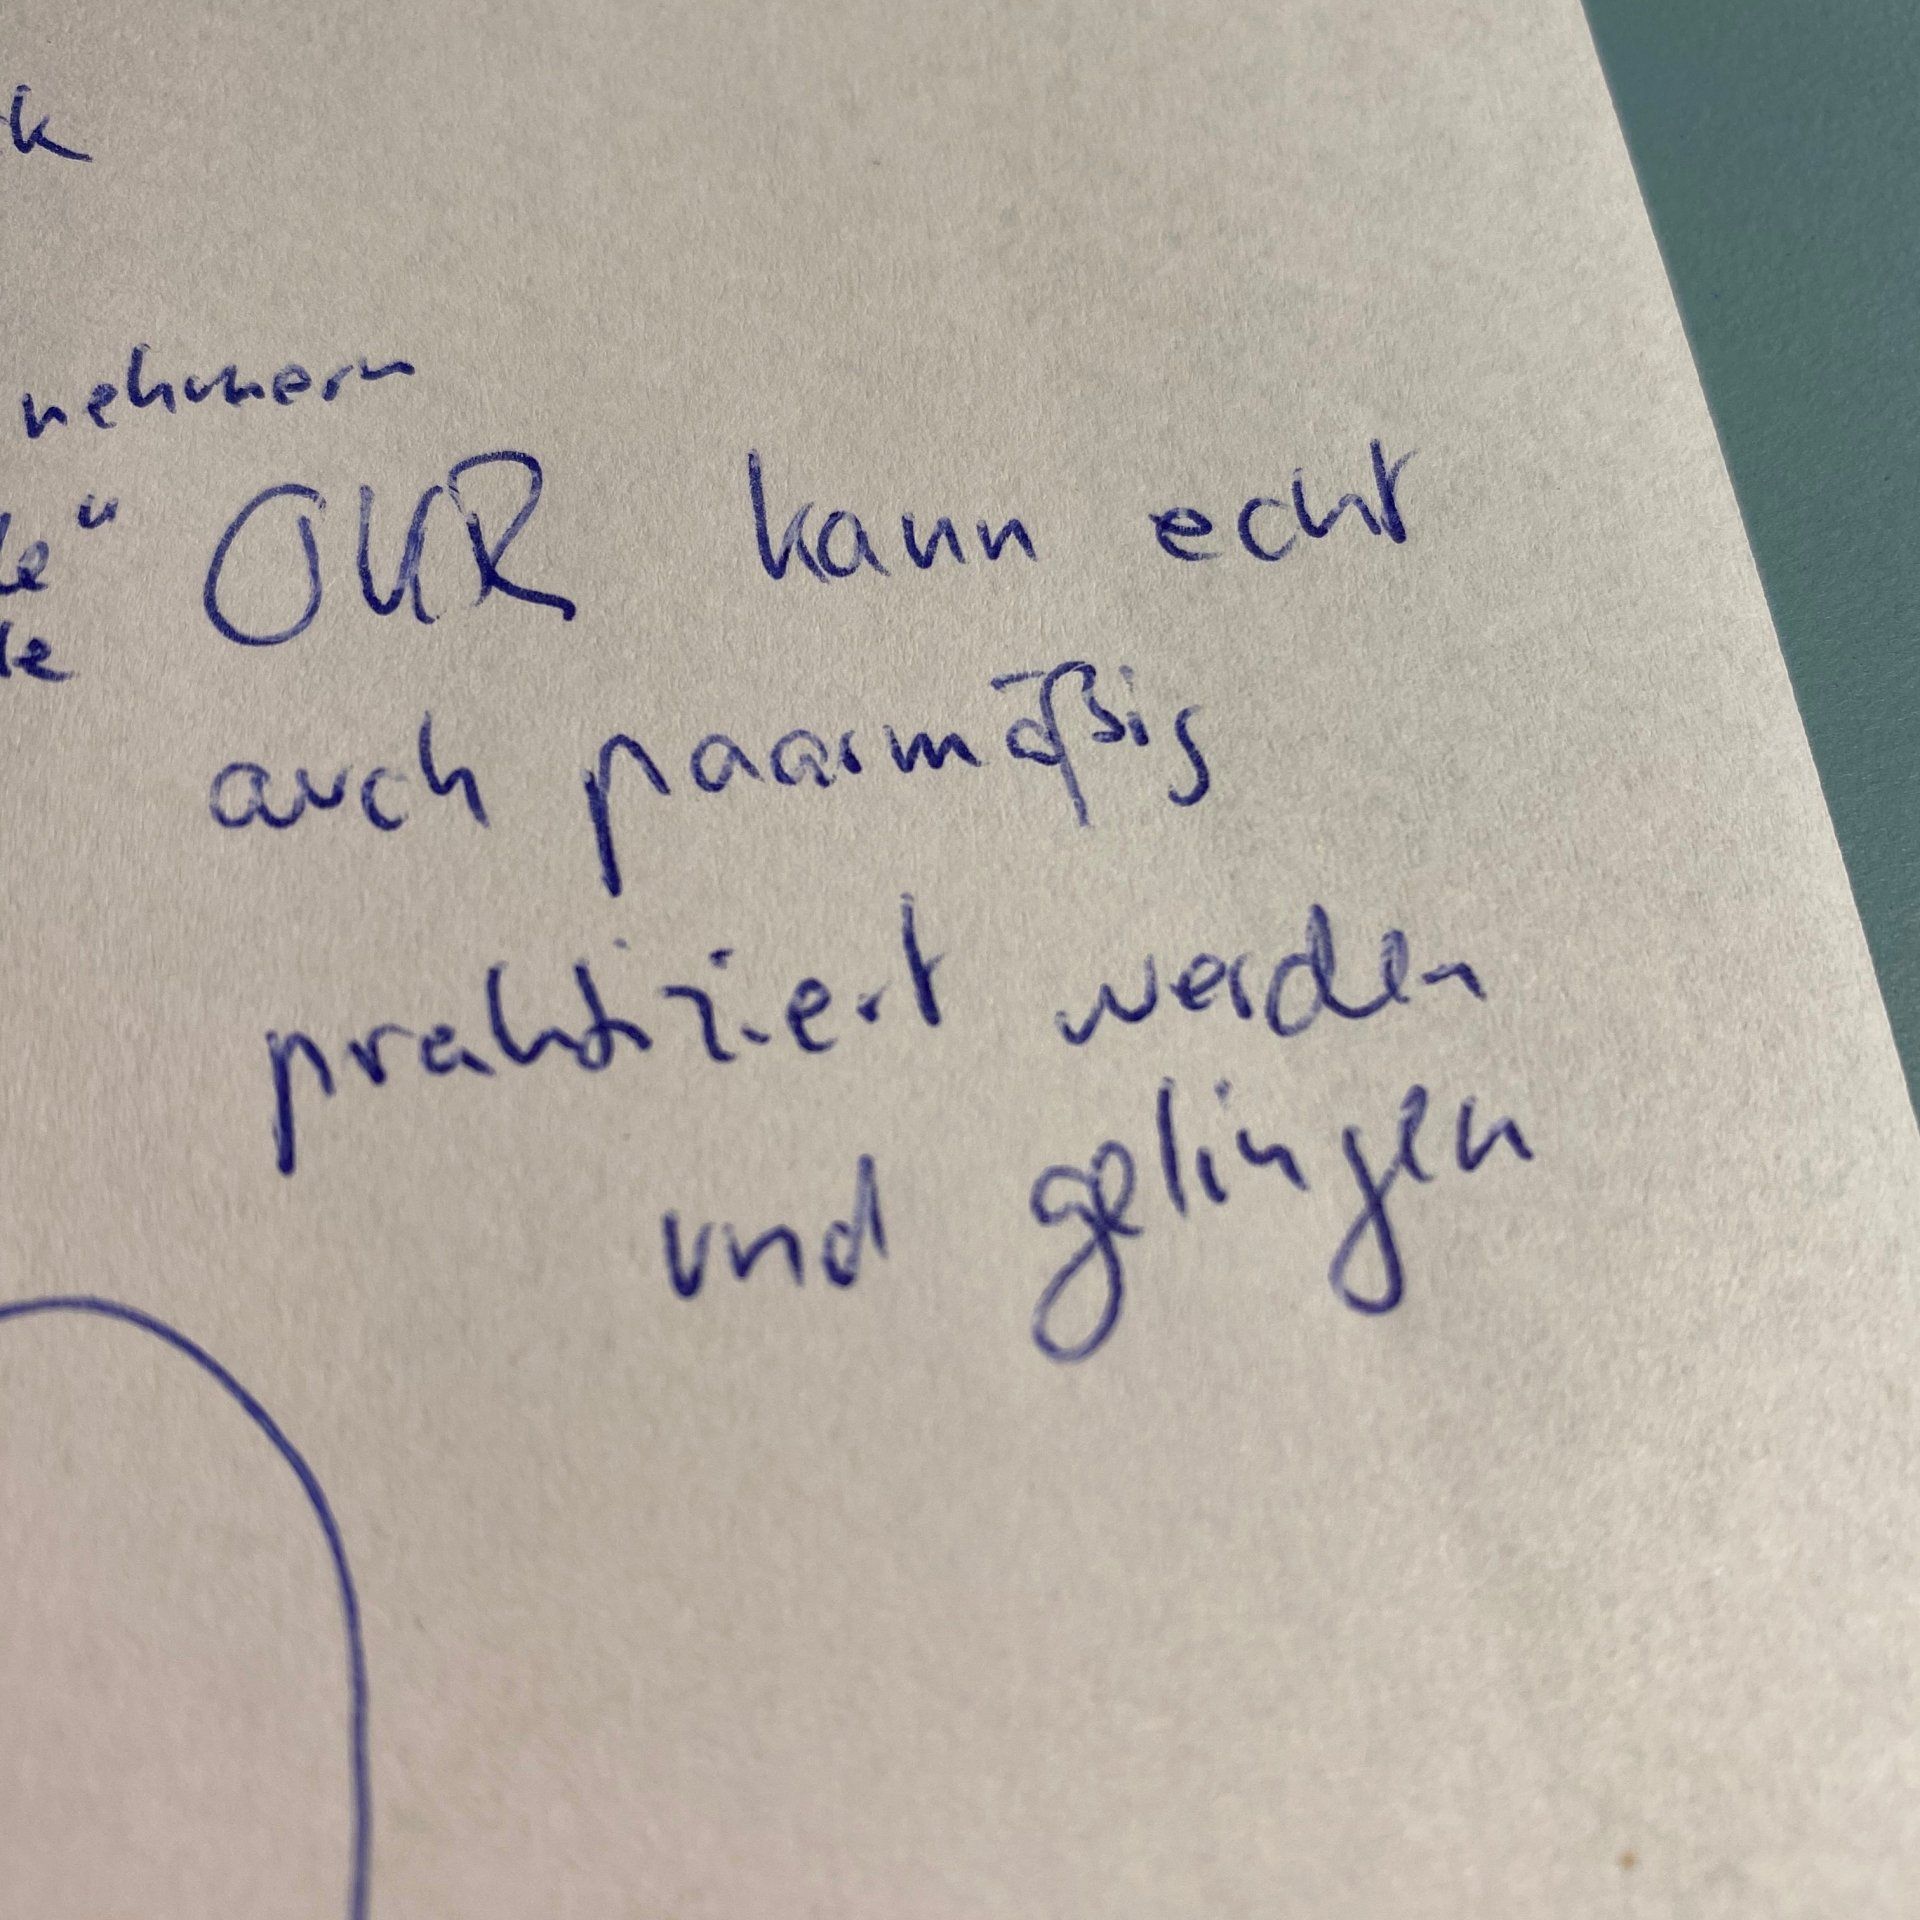 nehmern
OKR kann echt
auch paarmäßig
praktiziert werden
und gelingen